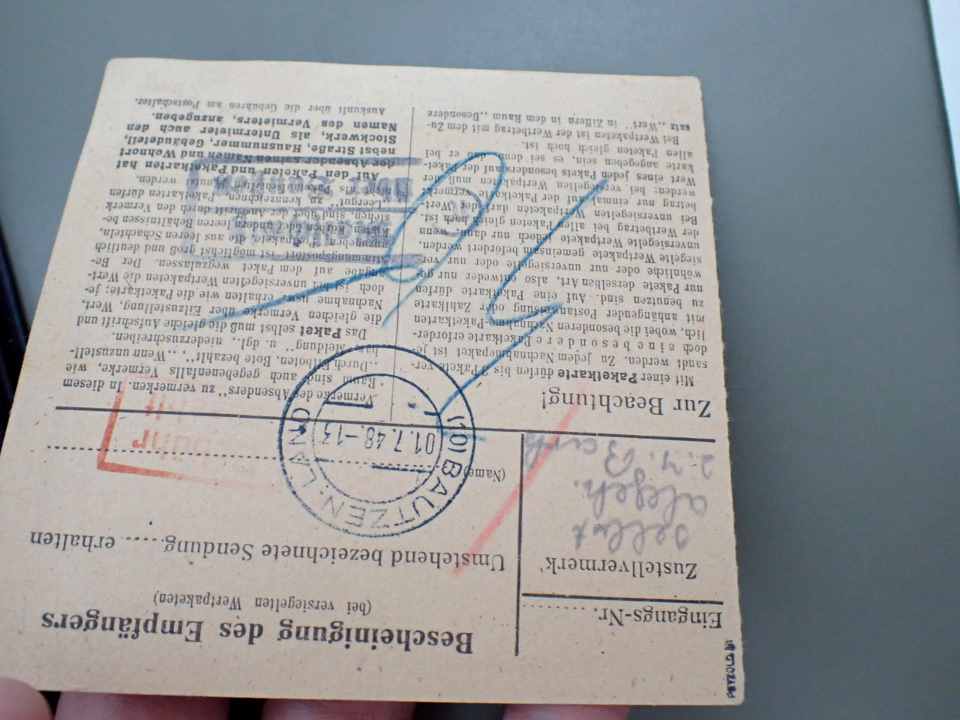 Bescheinigung des Empfängers
(bei versiegelten Wertpaketen)
Umstehend bezeichnete Sendung...... erhalten
(Name)
Eingangs-Nr.
Zustellvermerk
selbst
abgeh.
2.7.
(10) BAUTZEN. LAND 1
01.7.48.-13
Zur Beachtung!
Mit einer Paketkarte dürfen bis 3 Pakete ver-
sandt werden. Zu jedem Nachnahmepaket ist je-
doch eine besondere Paketkarte erforder-
lich, wobei die besonderen Nachnahme-Paketkarten
mit anhängender Postanweisung oder Zahlkarte
zu benutzen sind. Auf eine Paketkarte dürfen
nur Pakete derselben Art, also entweder nur ge-
wöhnliche oder nur unversiegelte oder nur ver-
siegelte Wertpakete gemeinsam befördert werden,
unversiegelte Wertpakete jedoch nur dann, wenn
der Wertbetrag bei allen Paketen gleich hoch ist.
Bei unversiegelten Wertpaketen darf der Wert-
betrag nur einmal auf der Paketkarte vermerkt
werden; bei versiegelten Wertpaketen muß der
Wert eines jeden Pakets besonders auf der Paket-
karte angegeben sein, es sei denn, daß er bei
allen Paketen gleich hoch ist.
Bei Wertpaketen ist der Wertbetrag mit dem Zu-
satz „Wert" in Ziffern in dem Raum „Besondere
Vermerke des Absenders" zu vermerken. In diesem
Raum sind auch gegebenenfalls Vermerke, wie
„Durch Eilboten, Bote bezahlt", „Wenn unzustell-
bar, Meldung" u. dgl., niederzuschreiben.
Das Paket selbst muß die gleiche Aufschrift und
die gleichen Vermerke über Eilzustellung, Wert,
Nachnahme usw. erhalten wie die Paketkarte; je-
doch ist bei unversiegelten Wertpaketen die Wert-
angabe auf dem Paket wegzulassen. Der Be-
stimmungspostort ist möglichst groß und deutlich
anzugeben. Postpakete, die aus leeren Schachteln,
Kisten, Körben oder andern leeren Behältnissen be-
stehen, sind über der Anschrift durch den Vermerk
„Leergut" zu kennzeichnen. Paketkarten dürfen
nicht als Paketaufschriften benutzt werden.
Auf den Paketen und Paketkarten hat
der Absender seinen Namen und Wohnort
nebst Straße, Hausnummer, Gebäudeteil,
Stockwerk, als Untermieter auch den
Namen des Vermieters, anzugeben.
Auskunft über die Gebühren am Postschalter.
PETZOLD